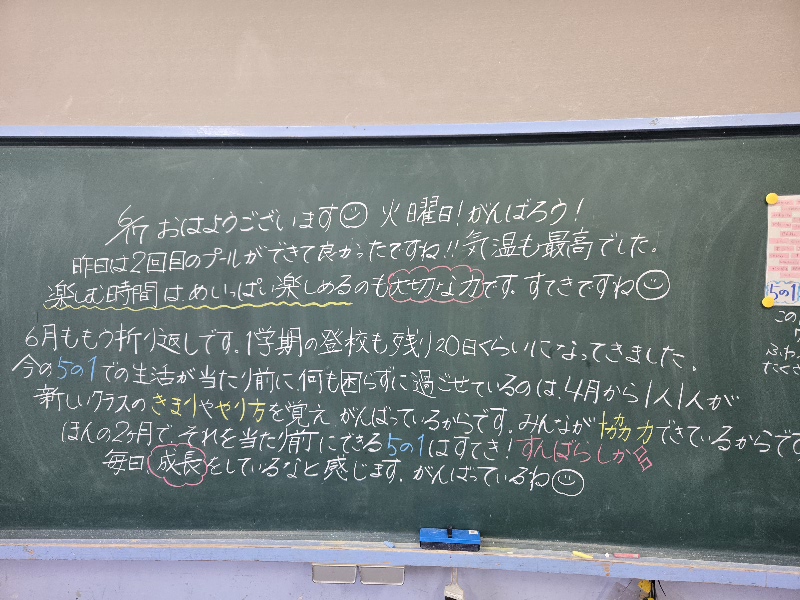 おはようございます 火曜日！がんばろう！
昨日は2回目のプールができて良かったですね!!気温も最高でした。
楽しむ時間は、めいっぱい楽しめるのも大切な力です。すてきですね
6月ももう折り返しです。1学期の登校も残り20日くらいになってきました。
今の5の1での生活が当たり前に、何も困らずに過ごせているのは、4月から1人1人が
新しいクラスのきまりややり方を覚え、がんばっているからです。みんなが協力できているからです
ほんの2ヶ月で、それを当たり前にできる5の1はすてき！すんばらしか
毎日成長をしているなと感じます。がんばっているね
5の1
この
ふわ
たくさ